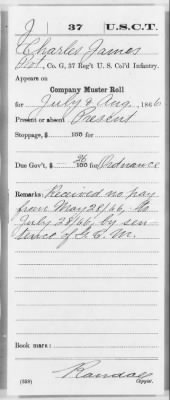 J 37 U.S.C.T.
Charles James
Pvt., Co. G, 37 Reg't U. S. Col'd Infantry.
Appears on
Company Muster Roll
for July & Aug., 1866
Present or absent Present
Stoppage, $ 100 for
Due Gov't, $ 26/100 for Ordnance
Remarks: Received no pay
from May 28/66, to
July 28/66, by sen
tence of G. C. M.
Book mark:
Randall
(358) Copyist.